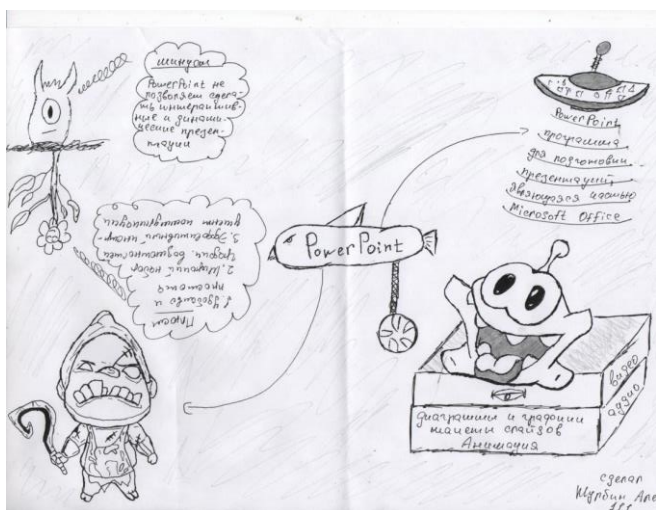 минусы
PowerPoint не
позволяет сдела-
ть интерактив-
ные и динами-
ческие презен-
тации
PowerPoint
программа
для подготовки
презентаций,
являющаяся частью
Microsoft Office
PowerPoint
Плюсы
1. Удобство и
простота
2. Широкий набор
график. возможностей
3. Эффективный инстр-
умент коммуникации
видео
аудио
диаграммы и графики
макеты слайдов
Анимация
сделал